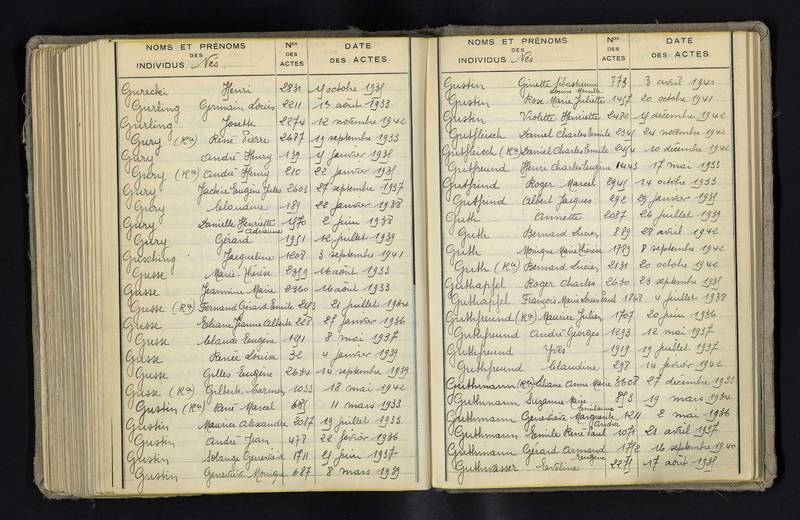 NOMS ET PRÉNOMS
DES
INDIVIDUS Nés
Nos
DES
ACTES
DATE
DES ACTES
Gurecki Henri 2831 octobre
Gurling Germain Louis 2211 1er août 1933
Gurling Josette 2274 12 novembre 1942
Gury (Ra) René Pierre 2687 septembre 1933
Gury André Henry 139 janvier
Gury (Ra) André Henry 210 22 janvier
Gury Jackie Eugène Jules 2603 27 septembre 1937
Gury Claudine 189 22 janvier 1938
Gury Danielle Henriette 1570 2 juin 1938
Adrienne
Gury Gérard 1951 12 juillet 1939
Jacqueline 1208 3 septembre 1941
Gusse Marie Thérèse 2359 16 août 1933
Gusse Jeannine Marie 2360 16 août 1933
Gusse (Ra) Fernand Gérard Emile 21 juillet 1934
Gusse Jeanne Alberte 228 27 janvier 1936
Gusse Claude Eugène 8 mai 1937
Gusse Renée Louise 32 4 janvier 1939
Gusse Gilles Eugène 2634 14 septembre 1939
Gusse (Ra) Gilberte Carmen 1033 18 mai 1942
Gustin (Ra) René Marcel 685 11 mars 1933
Gustin Maurice Alexandre 2087 19 juillet 1933
Gustin André Jean 478 22 février 1936
Gustin Solange Geneviève 1711 21 juin 1937
Gustin Geneviève Monique 687 8 mars 1939
NOMS ET PRÉNOMS
DES
INDIVIDUS Nés
Nos
DES
ACTES
DATE
DES ACTES
Gustin Ginette Sébastienne 773 3 avril 1940
Gustin Rose Marie Juliette 1457 20 octobre 1941
Gustin Violette Henriette 2480 décembre 1942
Gutfleisch Daniel Charles Emile 24 novembre 1942
Gutfleisch (Ra) Daniel Charles Emile 10 décembre 1942
Gutfreund Henri Charles Eugène 1443 17 mai 1933
Gutfreund Roger Marcel 14 octobre 1933
Albert Jacques 292 29 janvier
Guth Annette 2087 26 juillet 1939
Guth Bernard Lucien 889 28 avril 1942
Guth Monique Marie Thérèse 1789 8 septembre 1942
Guth (Ra) Bernard Lucien 2131 20 octobre 1942
Guthapfel Roger Charles 2630 23 septembre
Guthapfel François Marie Louis Paul 1868 4 juillet 1938
Guthfreund (Ra) Maurice Julien 1707 20 juin 1936
Guthfreund André Georges 1293 12 mai 1937
Guthfreund Yves 1919 19 juillet 1937
Guthfreund Claudine 298 14 février 1942
Guthmann (Ra) Liliane Anne Marie 3608 27 décembre
Guthmann Suzanne Marie 853 19 mars 1934
Emilienne
Guthmann Geneviève Marguerite 1211 2 mai 1936
Andrée
Guthmann Emile René Paul 1071 21 avril 1937
Guthmann Gérard Armand 1792 16 septembre 1940
Eugène
Guthwasser Eveline 2271 17 août